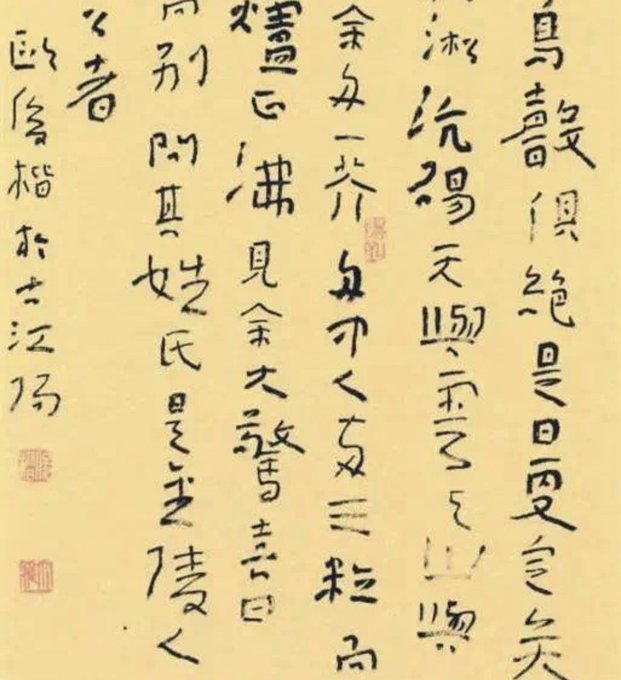 鳥聲俱絕是日更定矣
淞沆碭天與雲与山與
余舟一芥舟中人两三粒而
爐正沸見余大驚喜曰
而别問其姓氏是金陵人
公者
歐俊楷於古江陽